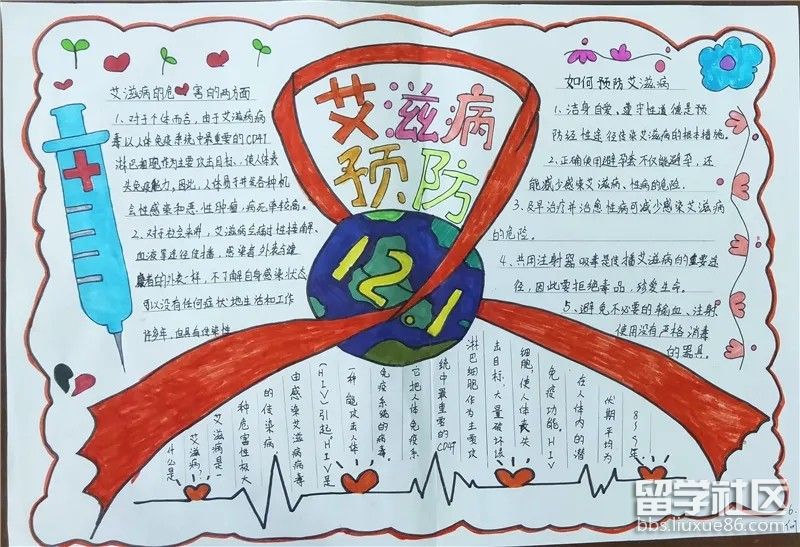 艾滋病
预防
12.1
艾滋病的危害的两方面
1、对于个体而言，由于艾滋病病
毒以人体免疫系统中最重要的CD4T
淋巴细胞作为主要攻击目标，使人体丧
失免疫能力，因此，人体易于并发各种机
会性感染和恶性肿瘤，病死率较高。
2、对于社会来讲，艾滋病会通过性接触、
血液等途径传播，感染者外表与健
康者的外表一样，不了解自身感染状态
可以没有任何症状地生活和工作
许多年，但具有传染性
如何预防艾滋病
1、洁身自爱、遵守性道德是预
防经性途径传染艾滋病的根本措施。
2、正确使用避孕套不仅能避孕，还
能减少感染艾滋病、性病的危险。
3、及早治疗并治愈性病可减少感染艾滋病
的危险。
4、共用注射器吸毒是传播艾滋病的重要途
径，因此要拒绝毒品，珍爱生命。
5、避免不必要的输血、注射
使用没有严格消毒
的器具。
什么是
艾滋病？
艾滋病是一
种危害性极大
的传染病，
由感染艾滋病病毒
（HIV）引起，HIV是
一种能攻击人体
免疫系统的病毒。
它把人体免疫系
统中最重要的CD4T
淋巴细胞作为主要攻
击目标，大量破坏该
细胞，使人体丧失
免疫功能。HIV
在人体内的潜
伏期平均为
8~9年
留学社区
bbs.liuxue86.com